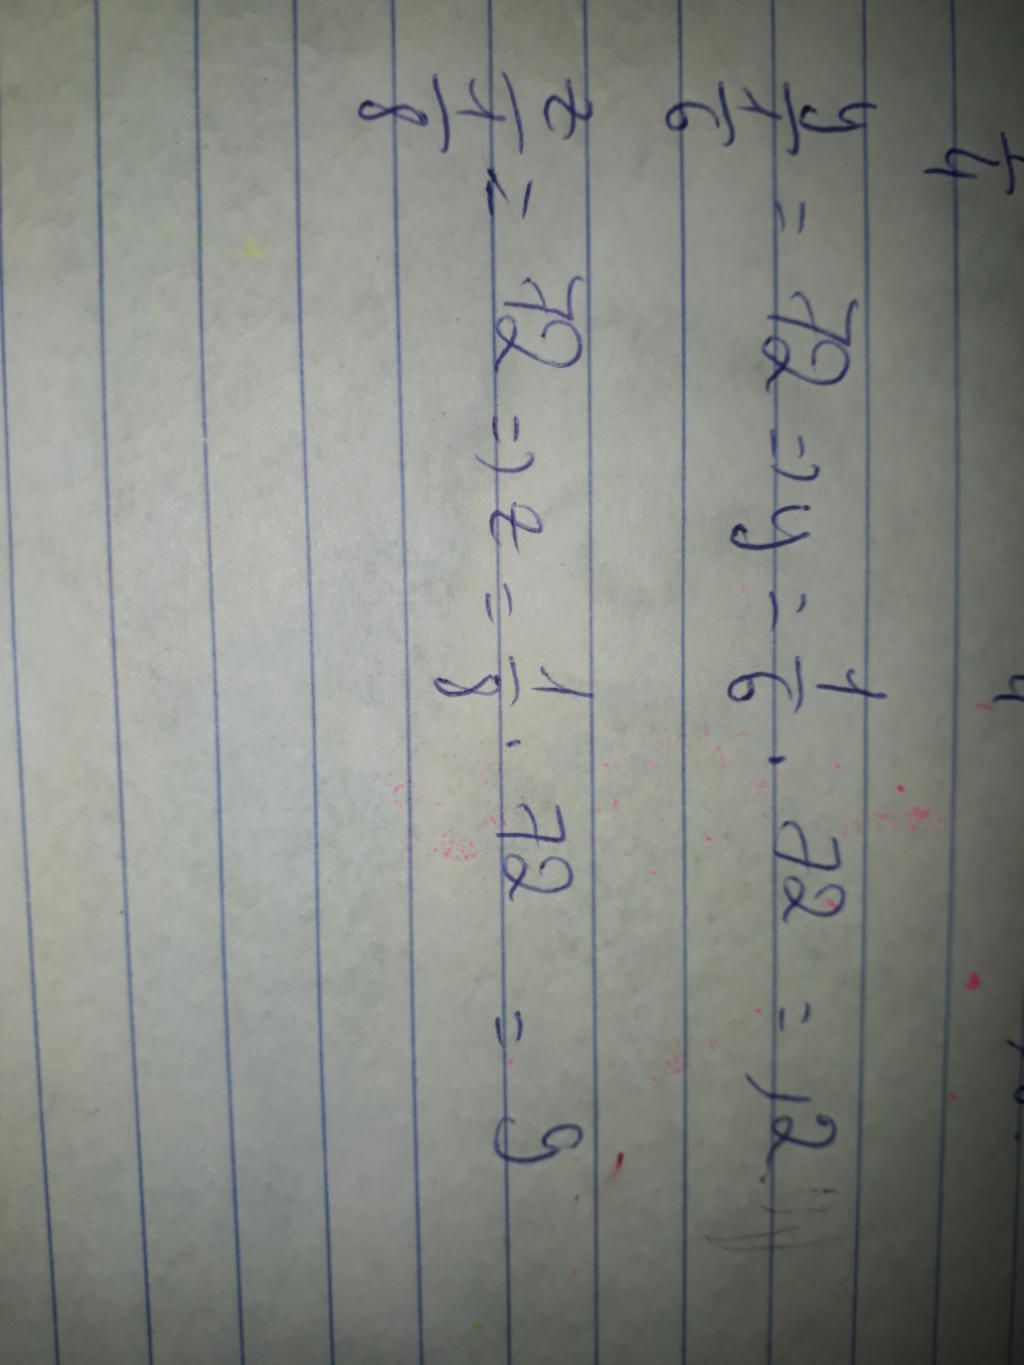 1/4
y/(1/6) = 72 => y = 1/6 . 72 = 12
z/(1/8) = 72 => z = 1/8 . 72 = 9